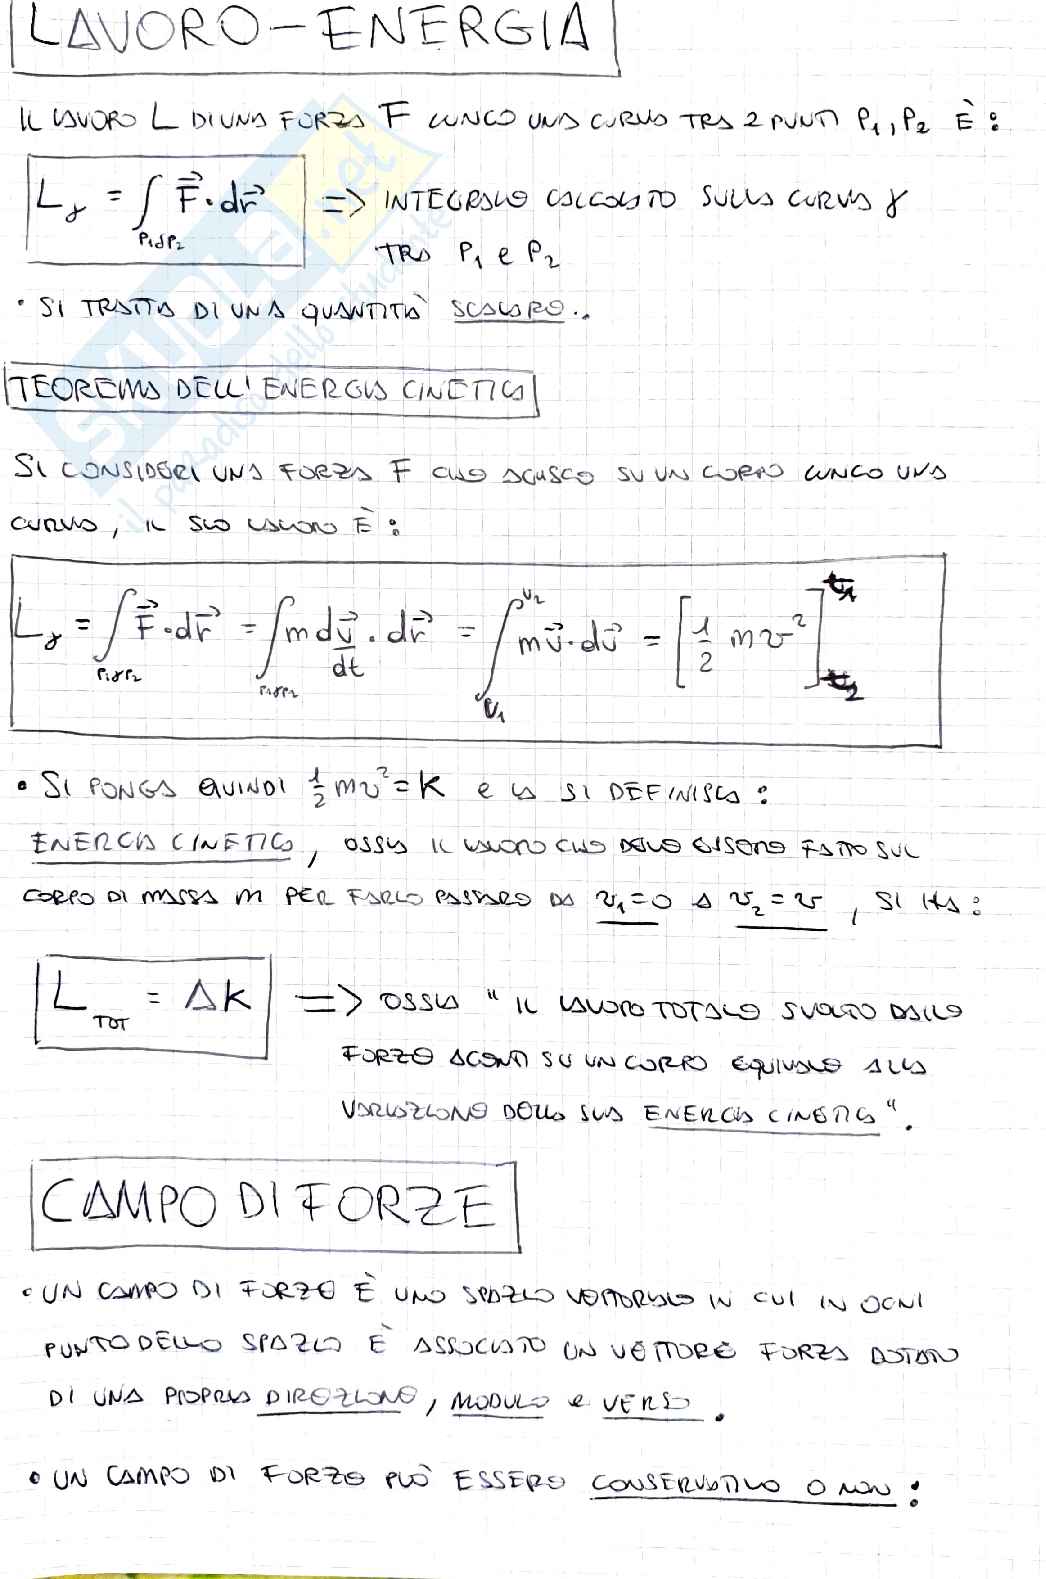 LAVORO - ENERGIA
IL LAVORO L DI UNA FORZA F LUNGO UNA CURVA TRA 2 PUNTI P₁, P₂ È :
L_γ = ∫_{P₁γP₂} F⃗ · dr⃗ => INTEGRALE CALCOLATO SULLA CURVA γ
TRA P₁ e P₂
• SI TRATTA DI UNA QUANTITÀ SCALARE..
TEOREMA DELL' ENERGIA CINETICA
SI CONSIDERI UNA FORZA F CHE AGISCE SU UN CORPO LUNGO UNA
CURVA, IL SUO LAVORO È :
L_γ = ∫_{P₁γP₂} F⃗ · dr⃗ = ∫_{P₁γP₂} m dv⃗/dt · dr⃗ = ∫_{v₁}^{v₂} m v⃗ · dv⃗ = [1/2 m v²]
• SI PONGA QUINDI 1/2 mv² = K e LA SI DEFINISCA :
ENERGIA CINETICA, OSSIA IL LAVORO CHE DEVE ESSERE FATTO SUL
CORPO DI MASSA m PER FARLO PASSARE DA v₁=0 A v₂=v , SI HA :
L_TOT = ΔK => OSSIA " IL LAVORO TOTALE SVOLTO DALLE
FORZE AGENTI SU UN CORPO EQUIVALE ALLA
VARIAZIONE DELLA SUA ENERGIA CINETICA ".
CAMPO DI FORZE
• UN CAMPO DI FORZE È UNO SPAZIO VETTORIALE IN CUI IN OGNI
PUNTO DELLO SPAZIO È ASSOCIATO UN VETTORE FORZA DOTATO
DI UNA PROPRIA DIREZIONE, MODULO e VERSO.
• UN CAMPO DI FORZE PUÒ ESSERE CONSERVATIVO O NON :
SKUOLA.net
il paradiso dello studente